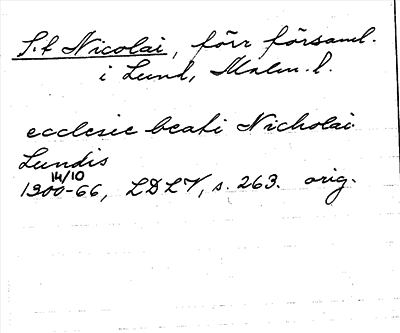 S:t Nicolai, förr församl.
i Lund, Malm. l.
ecclesie beati Nicholai
Lundis
14/10
1300-66, LDLV, s. 263. orig.